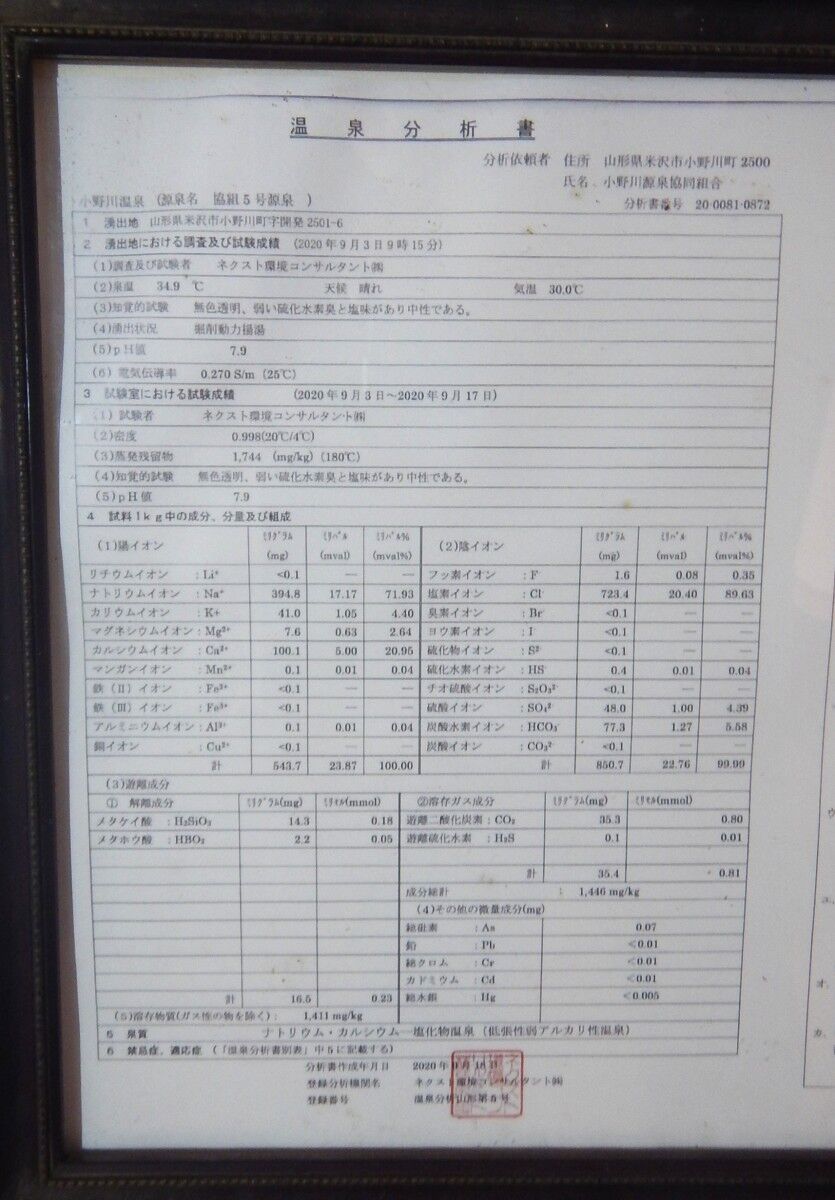 温泉分析書
分析依頼者 住所 山形県米沢市小野川町2500
氏名 小野川源泉協同組合
小野川温泉 (源泉名 協組5号源泉 )
分析書番号 20-0081-0872
1 湧出地 山形県米沢市小野川町字開発2501-6
2 湧出地における調査及び試験成績 (2020年9月3日9時15分)
(1)調査及び試験者 ネクスト環境コンサルタント㈱
(2)泉温 34.9 ℃ 天候 晴れ 気温 30.0℃
(3)知覚的試験 無色透明、弱い硫化水素臭と塩味があり中性である。
(4)湧出状況 掘削動力揚湯
(5)pH値 7.9
(6) 電気伝導率 0.270 S/m (25℃)
3 試験室における試験成績 (2020年9月3日～2020年9月17日)
(1) 試験者 ネクスト環境コンサルタント㈱
(2)密度 0.998(20℃/4℃)
(3)蒸発残留物 1,744 (mg/kg) (180℃)
(4)知覚的試験 無色透明、弱い硫化水素臭と塩味があり中性である。
(5)pH値 7.9
4 試料1kg中の成分、分量及び組成
(1)陽イオン ﾐﾘｸﾞﾗﾑ (mg) ﾐﾘﾊﾞﾙ (mval) ﾐﾘﾊﾞﾙ% (mval%) (2)陰イオン ﾐﾘｸﾞﾗﾑ (mg) ﾐﾘﾊﾞﾙ (mval) ﾐﾘﾊﾞﾙ% (mval%)
リチウムイオン : Li⁺ <0.1 — — フッ素イオン : F⁻ 1.6 0.08 0.35
ナトリウムイオン : Na⁺ 394.8 17.17 71.93 塩素イオン : Cl⁻ 723.4 20.40 89.63
カリウムイオン : K+ 41.0 1.05 4.40 臭素イオン : Br⁻ <0.1 — —
マグネシウムイオン : Mg²⁺ 7.6 0.63 2.64 ヨウ素イオン : I⁻ <0.1 — —
カルシウムイオン : Ca²⁺ 100.1 5.00 20.95 硫化物イオン : S²⁻ <0.1 — —
マンガンイオン : Mn²⁺ 0.1 0.01 0.04 硫化水素イオン : HS⁻ 0.4 0.01 0.04
鉄(Ⅱ)イオン : Fe²⁺ <0.1 — — チオ硫酸イオン : S₂O₃²⁻ <0.1 — —
鉄(Ⅲ)イオン : Fe³⁺ <0.1 — — 硫酸イオン : SO₄²⁻ 48.0 1.00 4.39
アルミニウムイオン : Al³⁺ 0.1 0.01 0.04 炭酸水素イオン : HCO₃⁻ 77.3 1.27 5.58
銅イオン : Cu²⁺ <0.1 — — 炭酸イオン : CO₃²⁻ <0.1 — —
計 543.7 23.87 100.00 計 850.7 22.76 99.99
(3)遊離成分
① 解離成分 ﾐﾘｸﾞﾗﾑ(mg) ﾐﾘﾓﾙ(mmol) ②溶存ガス成分 ﾐﾘｸﾞﾗﾑ(mg) ﾐﾘﾓﾙ(mmol)
メタケイ酸 : H₂SiO₃ 14.3 0.18 遊離二酸化炭素 : CO₂ 35.3 0.80
メタホウ酸 : HBO₂ 2.2 0.05 遊離硫化水素 : H₂S 0.1 0.01
計 35.4 0.81
成分総計 : 1,446 mg/kg
(4)その他の微量成分(mg)
総砒素 : As 0.07
鉛 : Pb <0.01
総クロム : Cr <0.01
カドミウム : Cd <0.01
総水銀 : Hg <0.005
計 16.5 0.23
(5)溶存物質(ガス性の物を除く) : 1,411 mg/kg
5 泉質 ナトリウム・カルシウム—塩化物温泉 (低張性弱アルカリ性温泉)
6 禁忌症、適応症 (「温泉分析書別表」中5に記載する)
分析書作成年月日 2020年9月18日
登録分析機関名 ネクスト環境コンサルタント㈱
登録番号 温泉分析山形第5号